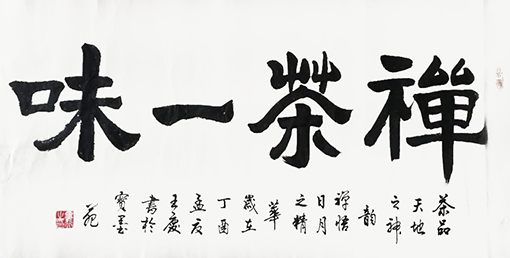 禪茶一味
茶品
天地
之神
韵
禅悟
日月
之精
華
歲在
丁酉
孟夏
王慶
書於
寶墨
苑